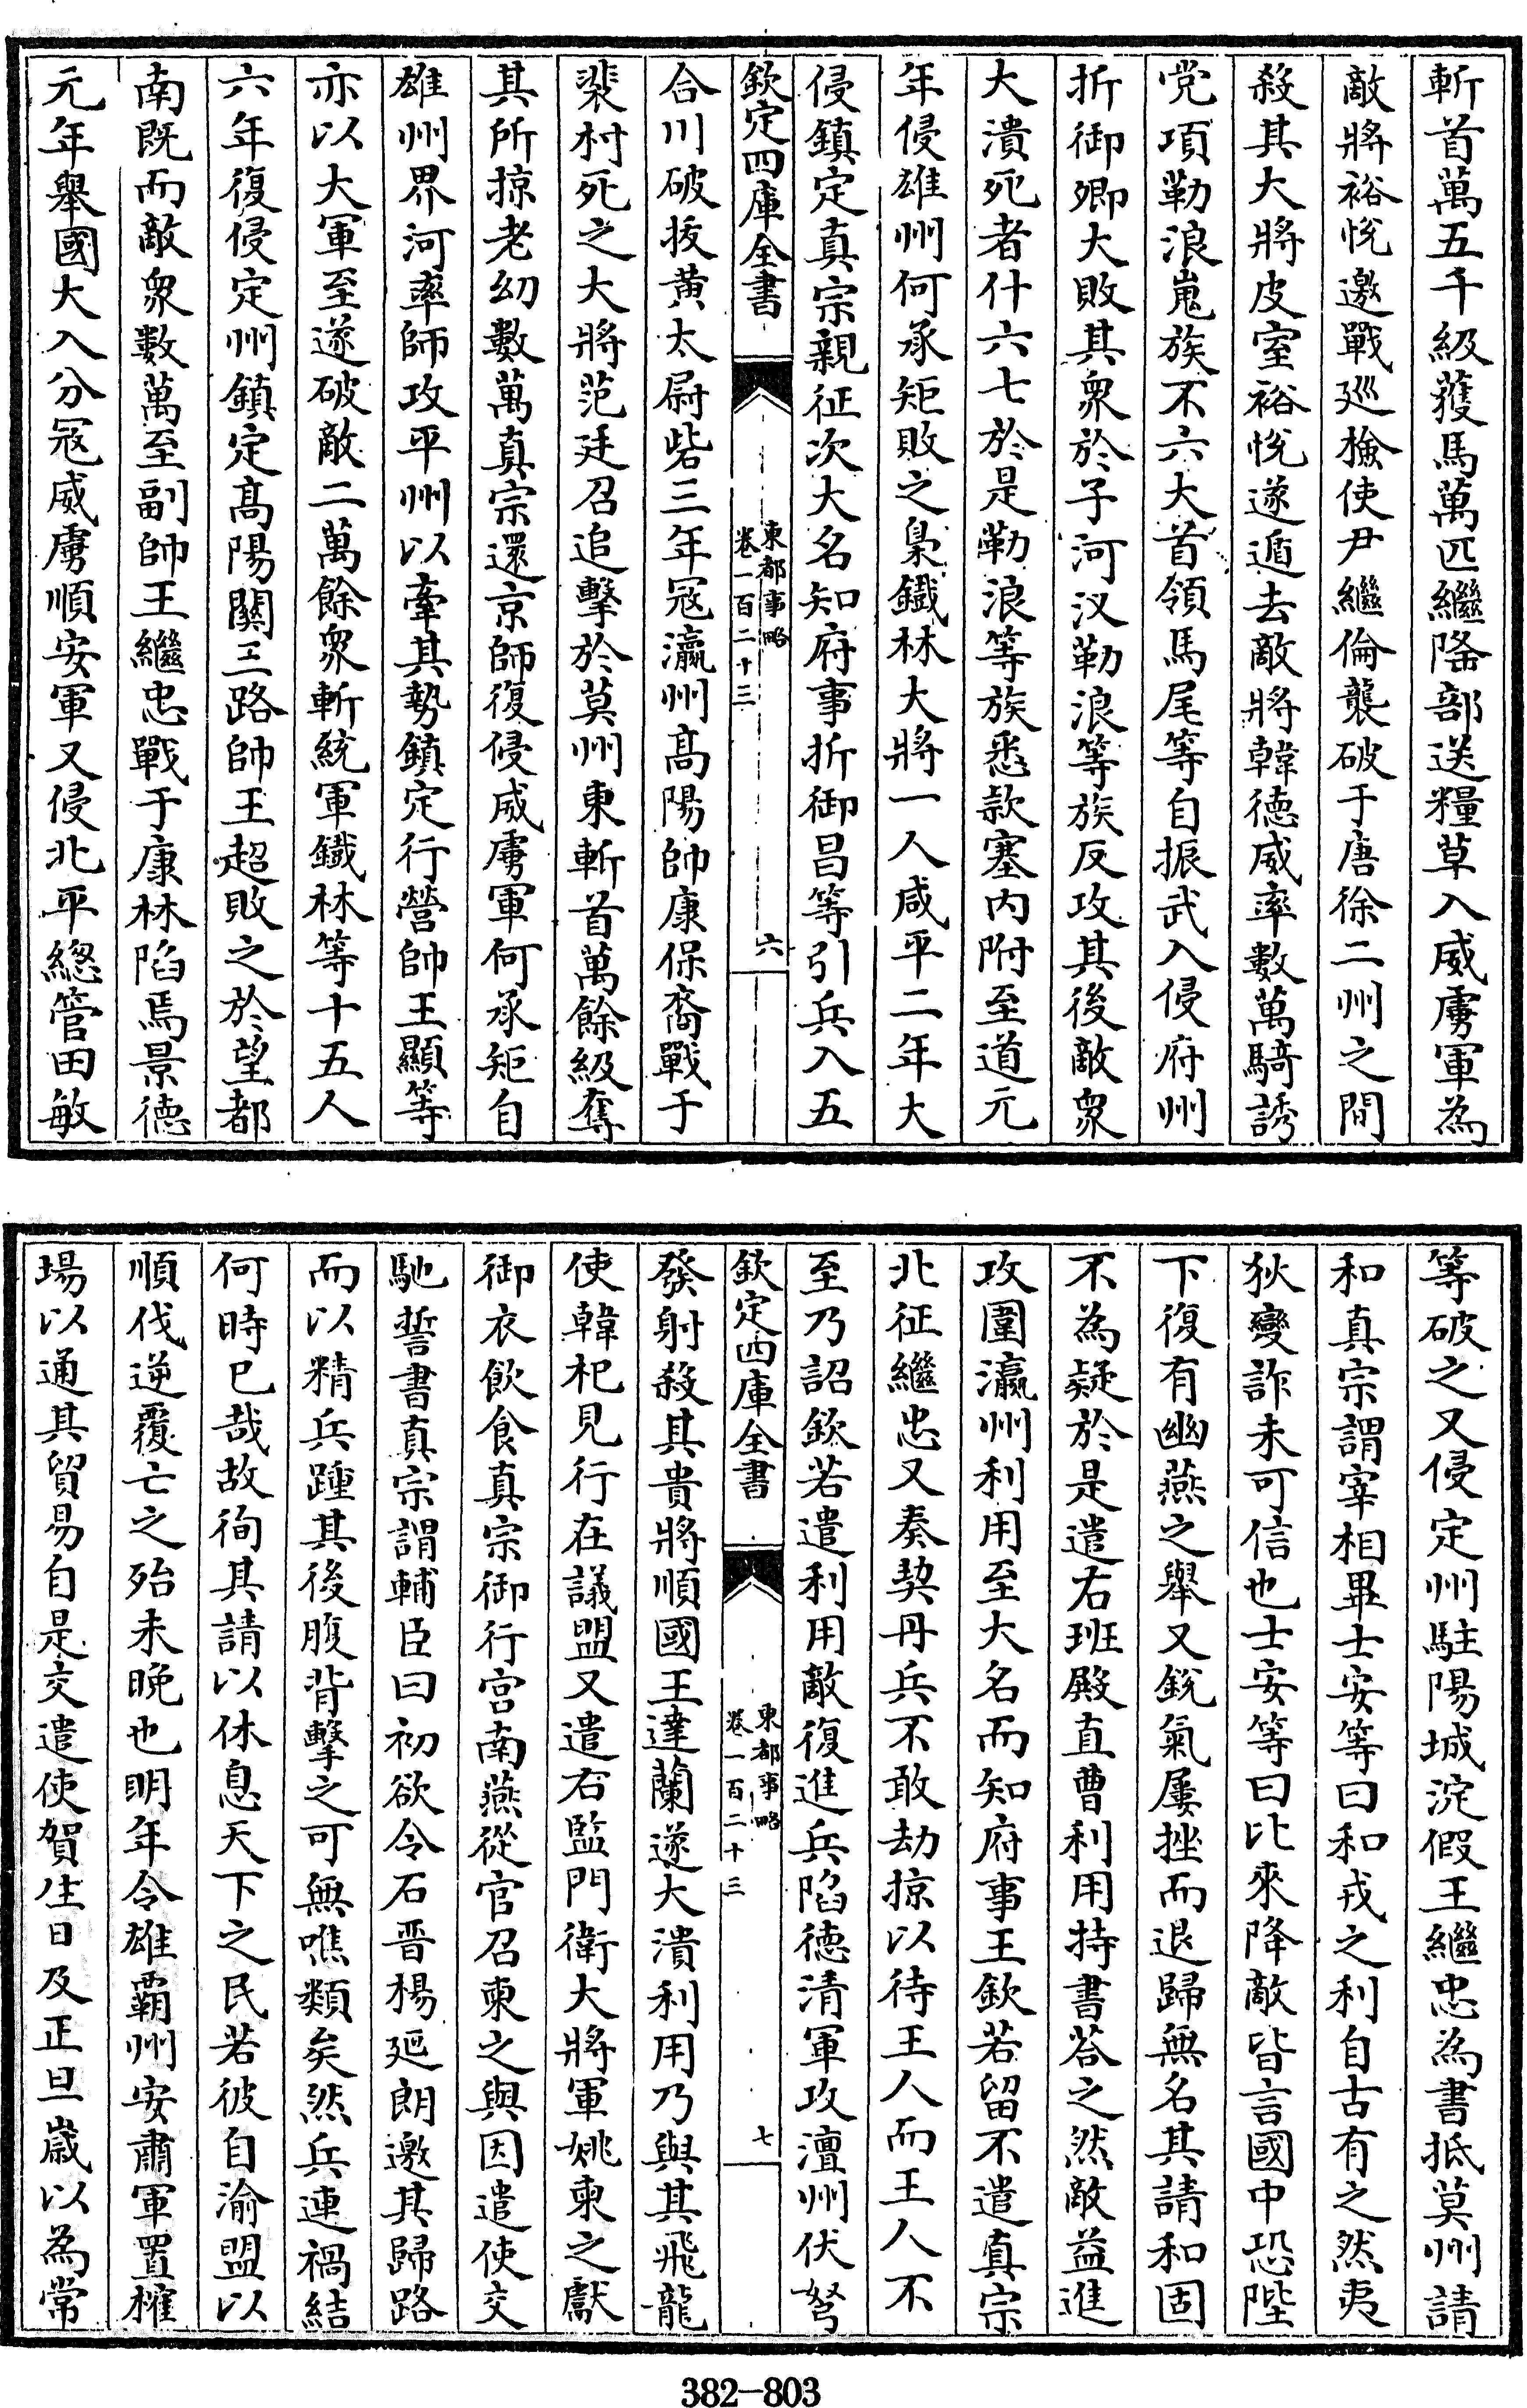 斬首萬五千級獲馬萬匹繼隆部送糧草入威虜軍為
敵將裕悅邀戰廵檢使尹繼倫襲破于唐徐二州之間
殺其大將皮室裕悅遂遁去敵將韓德威率數萬騎誘
党項勒浪嵬族不六大首領馬尾等自振武入侵府州
折御卿大敗其衆於子河汊勒浪等族反攻其後敵衆
大潰死者什六七於是勒浪等族悉款塞内附至道元
年侵雄州何承矩敗之梟鐵林大將一人咸平二年大
侵鎮定真宗親征次大名知府事折御昌等引兵入五
欽定四庫全書
東都事略
卷一百二十三
六
合川破拔黄太尉砦三年冦瀛州高陽帥康保裔戰于
裴村死之大將范廷召追擊於莫州東斬首萬餘級奪
其所掠老幼數萬真宗還京師復侵威虜軍何承矩自
雄州界河率師攻平州以牽其勢鎮定行營帥王顯等
亦以大軍至遂破敵二萬餘衆斬統軍鐵林等十五人
六年復侵定州鎮定高陽關三路帥王超敗之於望都
南既而敵衆數萬至副帥王繼忠戰于康林陷焉景德
元年舉國大入分冦威虜順安軍又侵北平總管田敏
等破之又侵定州駐陽城淀假王繼忠為書抵莫州請
和真宗謂宰相畢士安等曰和戎之利自古有之然夷
狄變詐未可信也士安等曰比來降敵皆言國中恐陛
下復有幽燕之舉又銳氣屢挫而退歸無名其請和固
不為疑於是遣右班殿直曹利用持書荅之然敵益進
攻圍瀛州利用至大名而知府事王欽若留不遣真宗
北征繼忠又奏契丹兵不敢劫掠以待王人而王人不
至乃詔欽若遣利用敵復進兵陷德清軍攻澶州伏弩
欽定四庫全書
東都事略
卷一百二十三
七
發射殺其貴將順國王達蘭遂大潰利用乃與其飛龍
使韓杞見行在議盟又遣右監門衛大將軍姚柬之獻
御衣飲食真宗御行宫南燕從官召柬之與因遣使交
馳誓書真宗謂輔臣曰初欲令石晋楊延朗邀其歸路
而以精兵踵其後腹背擊之可無噍類矣然兵連禍結
何時已哉故徇其請以休息天下之民若彼自渝盟以
順伐逆覆亡之殆未晚也明年令雄霸州安肅軍置榷
場以通其貿易自是交遣使賀生日及正旦嵗以為常
382-803